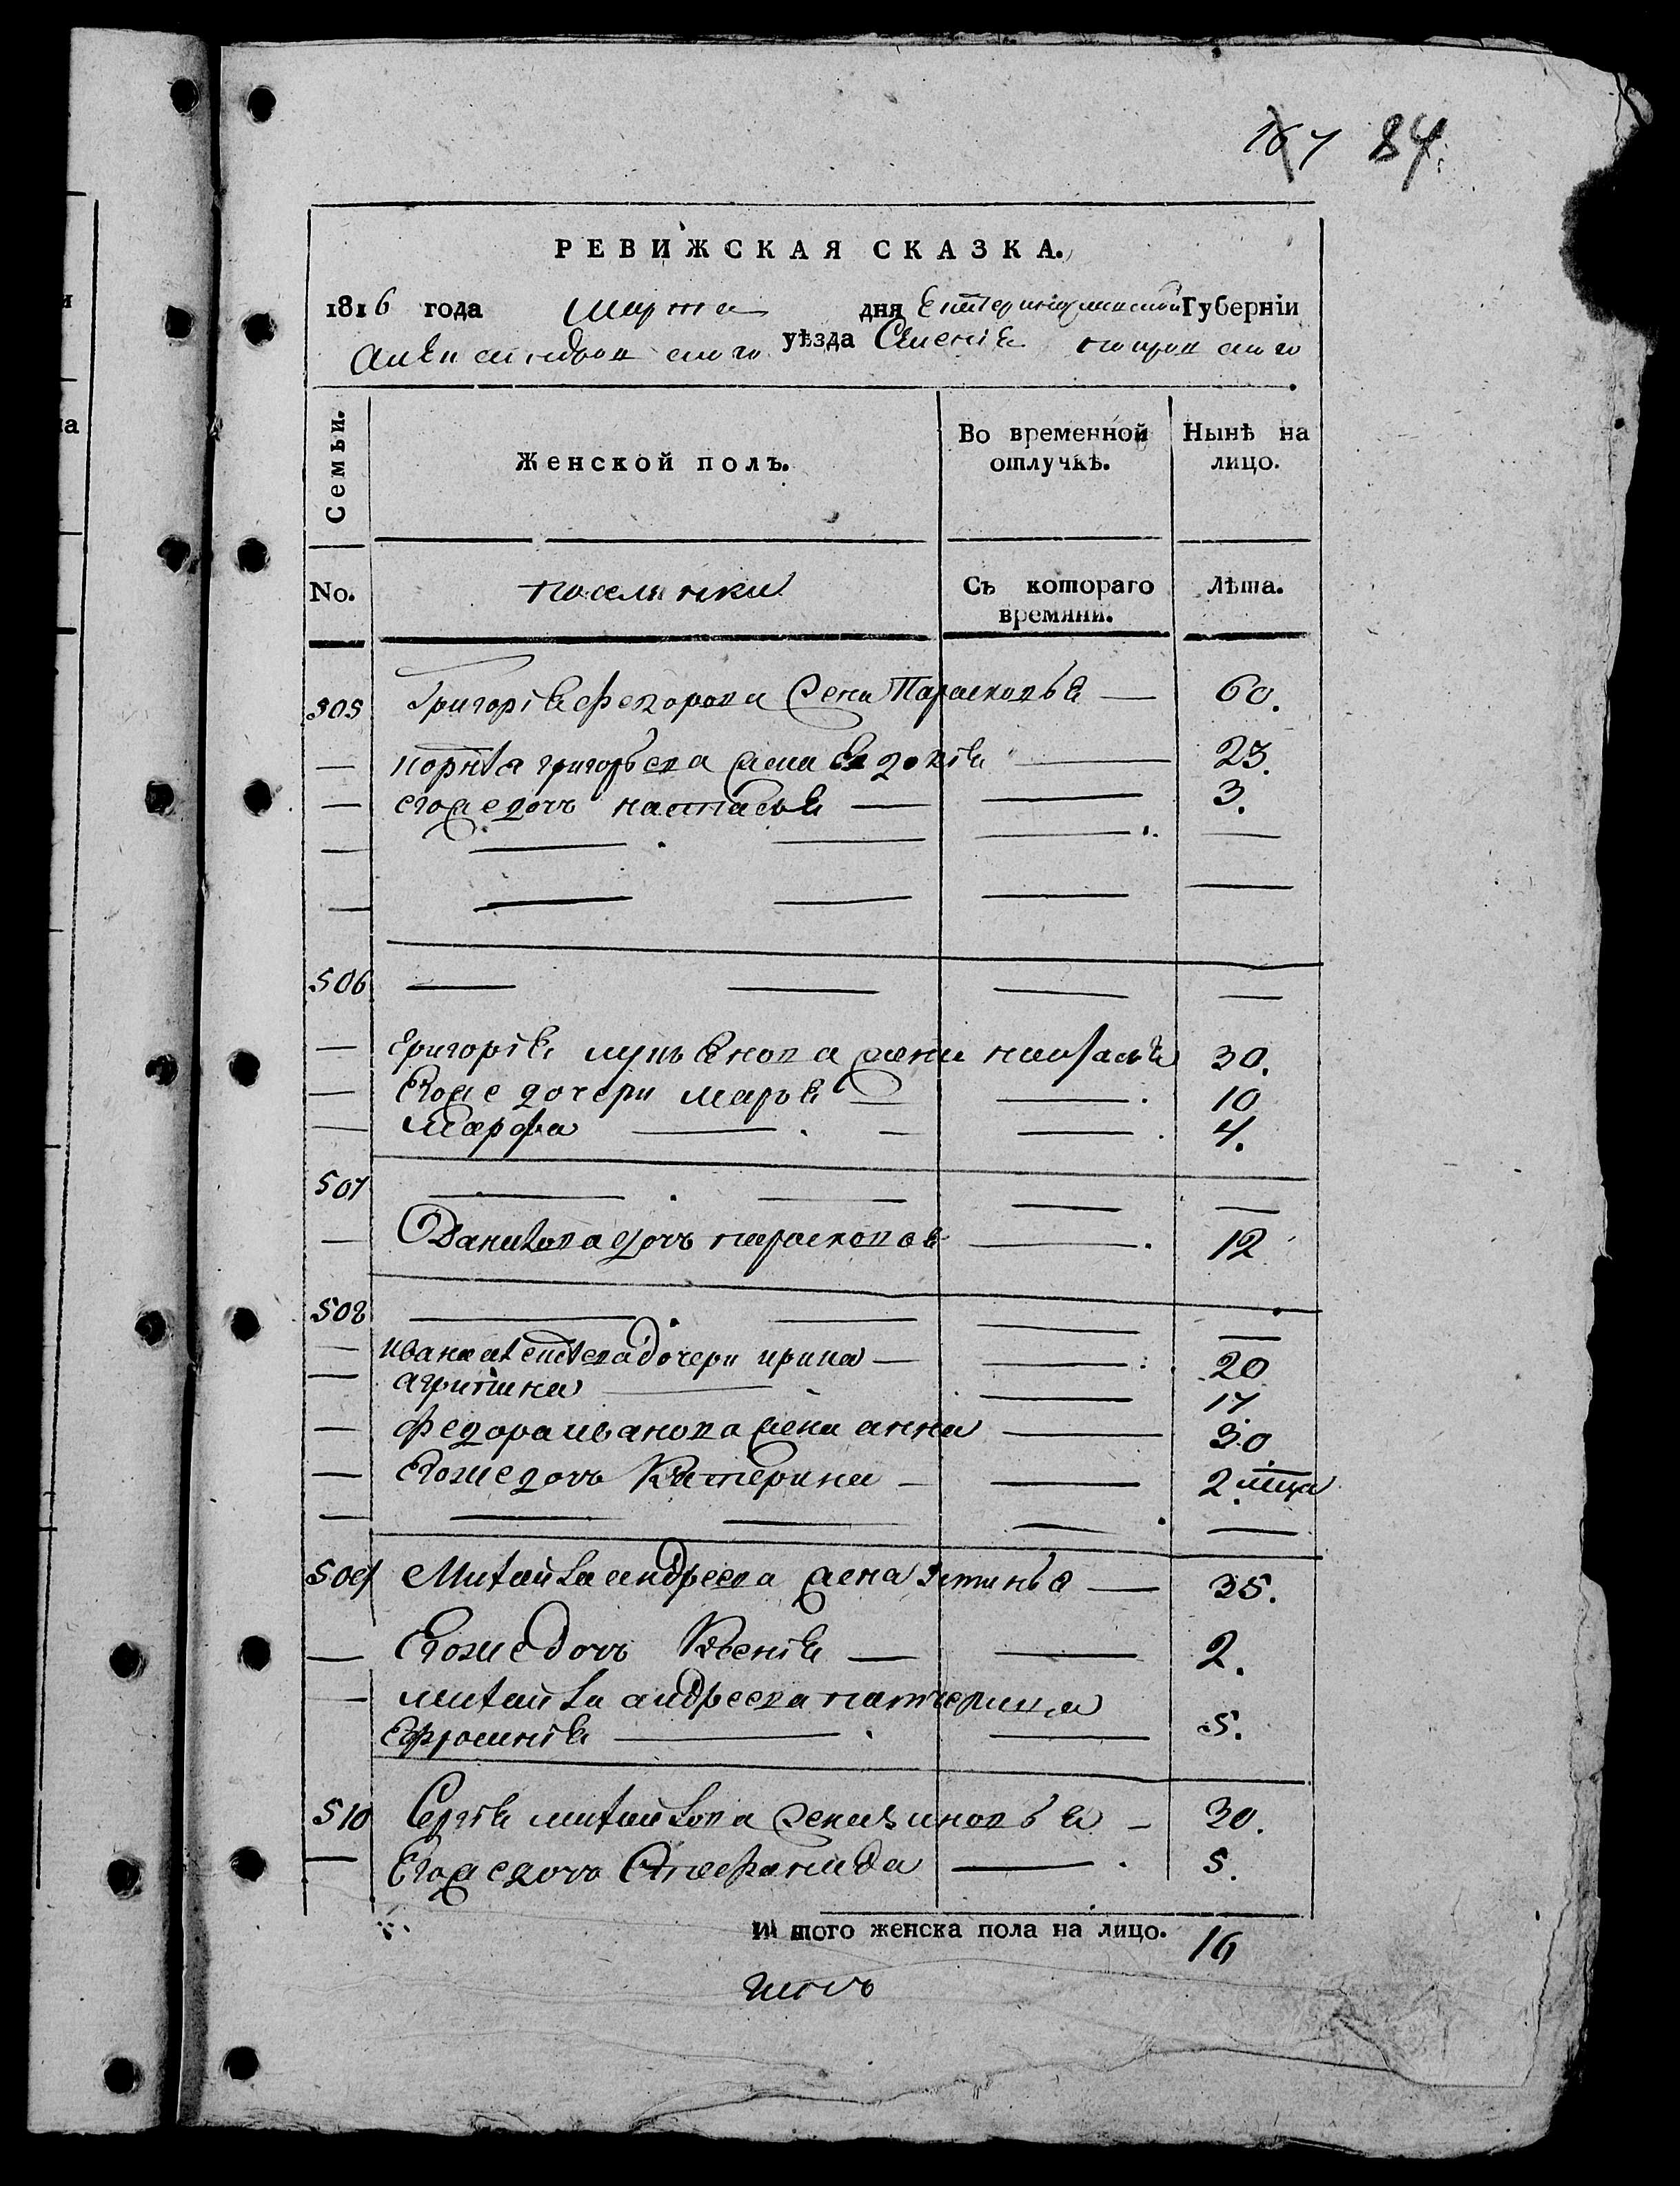 167 84.
РЕВИЖСКАЯ СКАЗКА.
1816 года Марта дня Екатеринославской Губерніи
Александровского уѣзда Селенія покровского
Семьи.
Женской полъ.
Во временной отлучкѣ.
Нынѣ на лицо.
No. поселянки Съ котораго времяни. Лѣта.
505 Григорія Федорова жена Парасковья — 60.
— корнѣя григорьева жена Евдокія — 23.
— егоже дочь настасья — — 3.
506 — — — —
— Григорія лукьянова жена настасья 30.
— Егоже дочери марья — — 10
— Марфа — — — 4.
507 — — — —
— Данилова дочь парасковья — 12
508 — — — —
— ивана алексѣева дочери ирина — — 20
— агрипина — — 17.
— федора иванова жена анна — 30
— Егоже дочь Катерина — — 2 мца
— — — — —
509 Михайла андреева жена Устинья — 35.
— Егоже дочь Ксенія — — 2.
— михайла андреева патчерица
Ефросинія — — 5.
510 Сергія михайлова жена зиновья — 30.
— Егоже дочь Стефанида — 5.
И того женска пола на лицо. 16